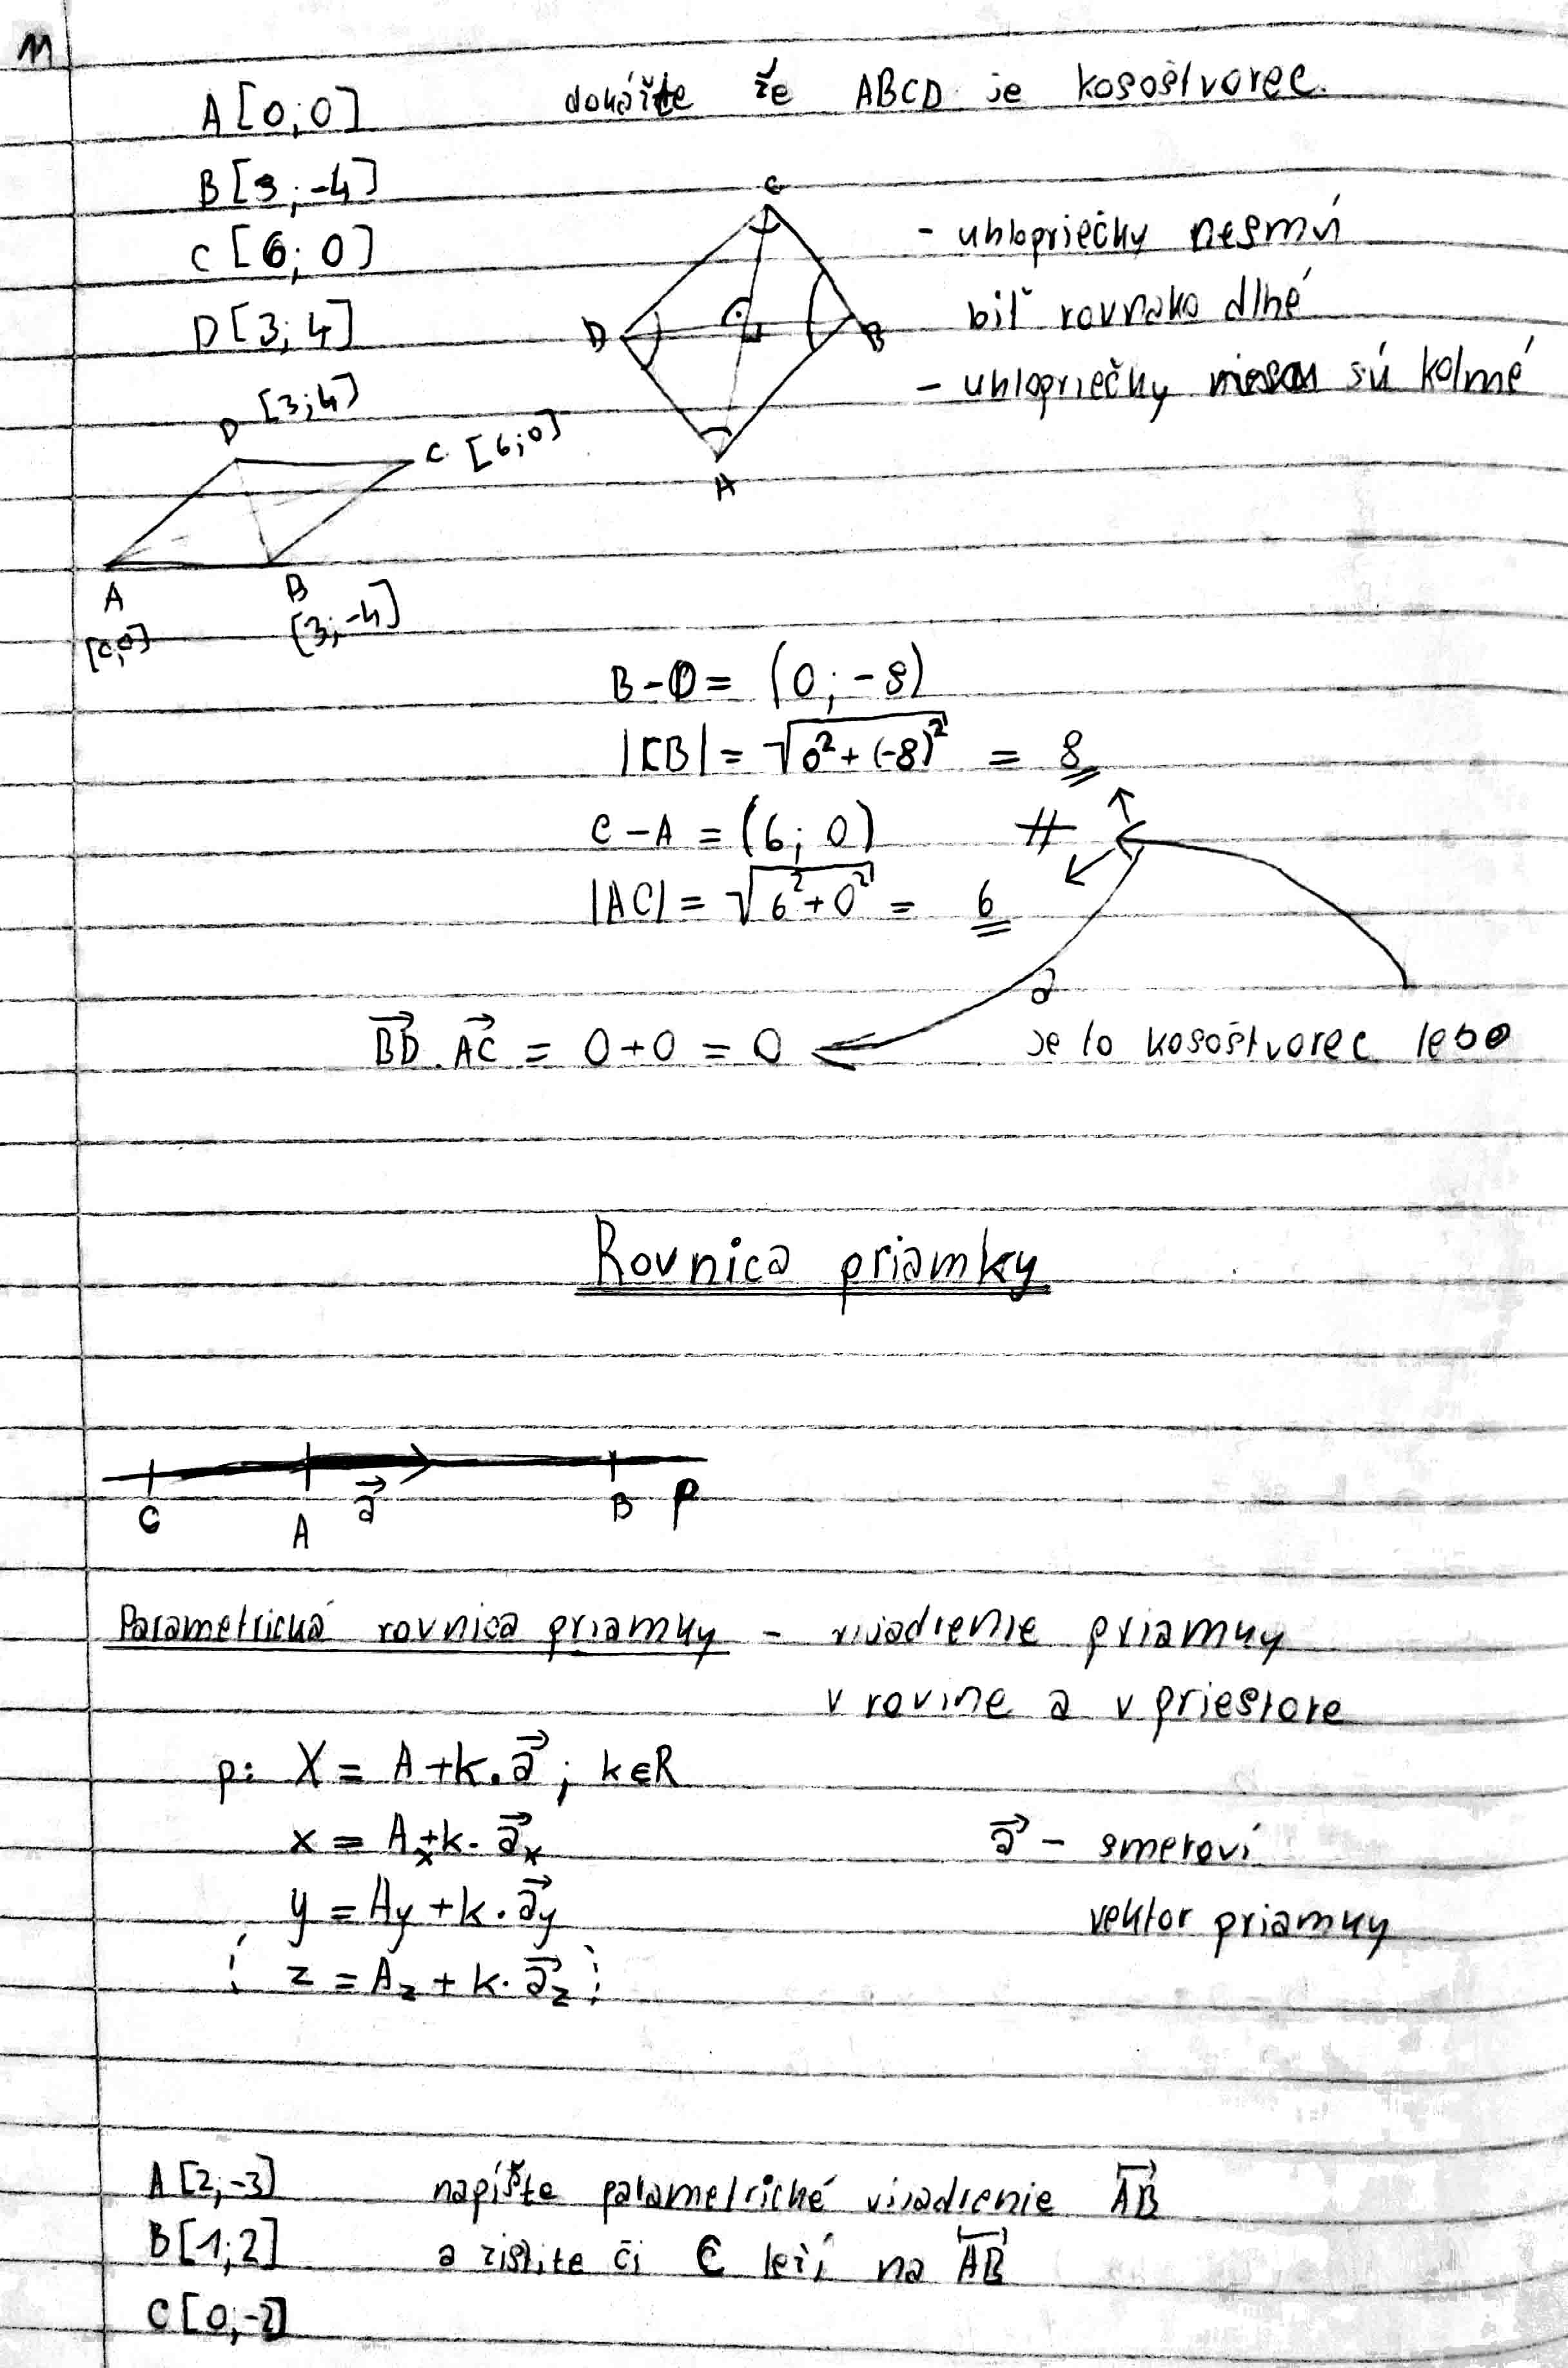 11
A[0;0] dokážte že ABCD je kosoštvorec.
B[3;-4]
C[6;0]
D[3;4]
C
D
B
A
- uhlopriečky nesmú
biť rovnako dlhé
- uhlopriečky sú kolmé
D [3;4]
C [6;0]
A
[0,0]
B
[3;-4]
B-D = (0;-8)
= √0²+(-8)² = 8
C-A = (6;0) #
|AC| = √6²+0² = 6
a
BD . AC = 0+0 = 0 je to kosoštvorec lebo
Rovnica priamky
C A a B p
Parametrická rovnica priamky - vijadrenie priamky
v rovine a v priestore
p: X = A+k.a; k∈R
x = Ax+k.ax a - smeroví
y = Ay+k.ay vektor priamky
z = Az+k.az
A[2;-3] napíšte parametrické vijadrenie AB
B[1;2] a zistite či C leží na AB
C[0;-2]